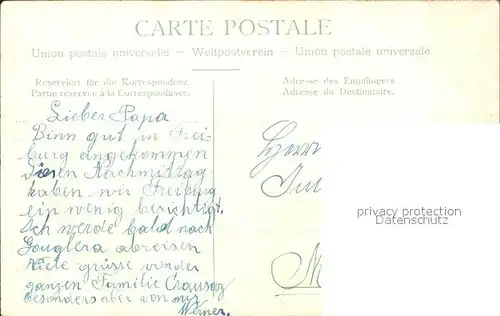 CARTE POSTALE
Union postale universelle — Weltpostverein — Union postale universale
Reserviert für die Korrespondenz
Partie réservée à la Correspondance.
Adresse des Empfängers
Adresse du Destinataire.
Lieber Papa
Binn gut in Frei-
burg angekommen
diesen Nachmittag
haben wir Freiburg
ein wenig besichtigt.
Ich werde bald nach
abreisen
Viele grüsse von der
ganzen Familie Crausaz
besonders aber von mir
Werner.
Herrn
privacy protection
Datenschutz